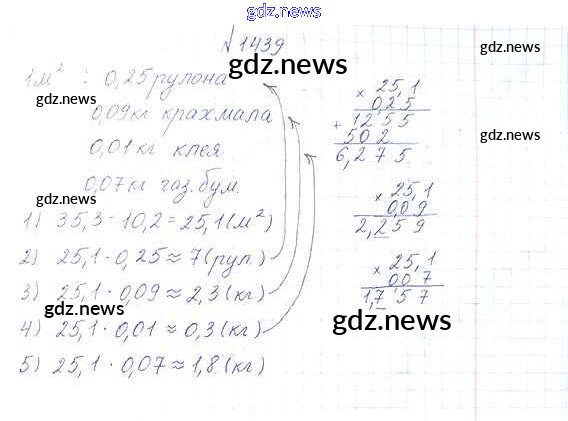 gdz.news
№ 1439
gdz.news
1м² : 0,25 рулона
0,09 кг крахмала
0,01 кг клея
0,07 кг газ. бум.
1) 35,3 - 10,2 = 25,1 (м²)
2) 25,1 · 0,25 ≈ 7 (рул.)
3) 25,1 · 0,09 ≈ 2,3 (кг)
4) 25,1 · 0,01 ≈ 0,3 (кг)
5) 25,1 · 0,07 ≈ 1,8 (кг)
gdz.news
gdz.news
gdz.news
× 25,1
0,25
1255
+
502
6,275
× 25,1
0,09
2,259
× 25,1
0,07
1,757
gdz.news
gdz.news
gdz.news